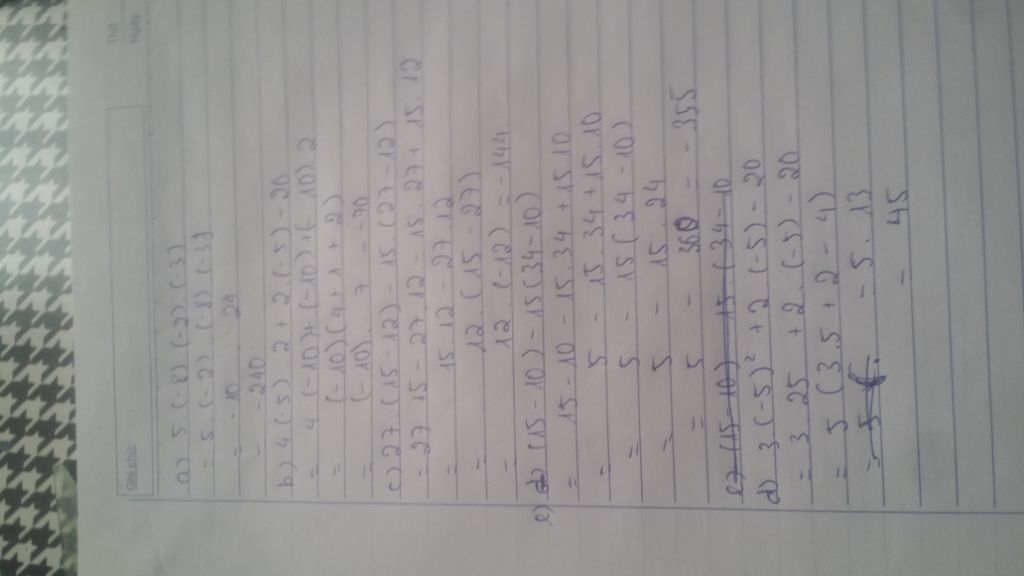 Ghi chú
Thứ
Ngày
a) 5 (-8) (-2). (-3)
= 5. (-2) (-8) (-3)
= -10 . 24
= -240
b) 4 (-5) 2 + 2. (-5) - 20
= 4 (-10) + (-10) + (-10). 2
= (-10) (4 + 1 + 2)
= (-10). 7 = -70
c) 27. (15 - 12) - 15. (27 - 12)
= 27. 15 - 27. 12 - 15. 27 + 15. 12
= 15. 12 - 27. 12
= 12. (15 - 27)
= 12. (-12) = -144
e) (15 - 10) - 15 (34 - 10)
= 15 - 10 - 15. 34 + 15. 10
= 5 - 15. 34 + 15. 10
= 5 - 15 (34 - 10)
= 5 - 15. 24
= 5 - 360 = -355
e) (15 - 10) - 15. (34 - 10
d) 3 (-5)² + 2. (-5) - 20
= 3. 25 + 2. (-5) - 20
= 5 (3. 5 + 2 - 4)
= 5 = 5. 13
= 45